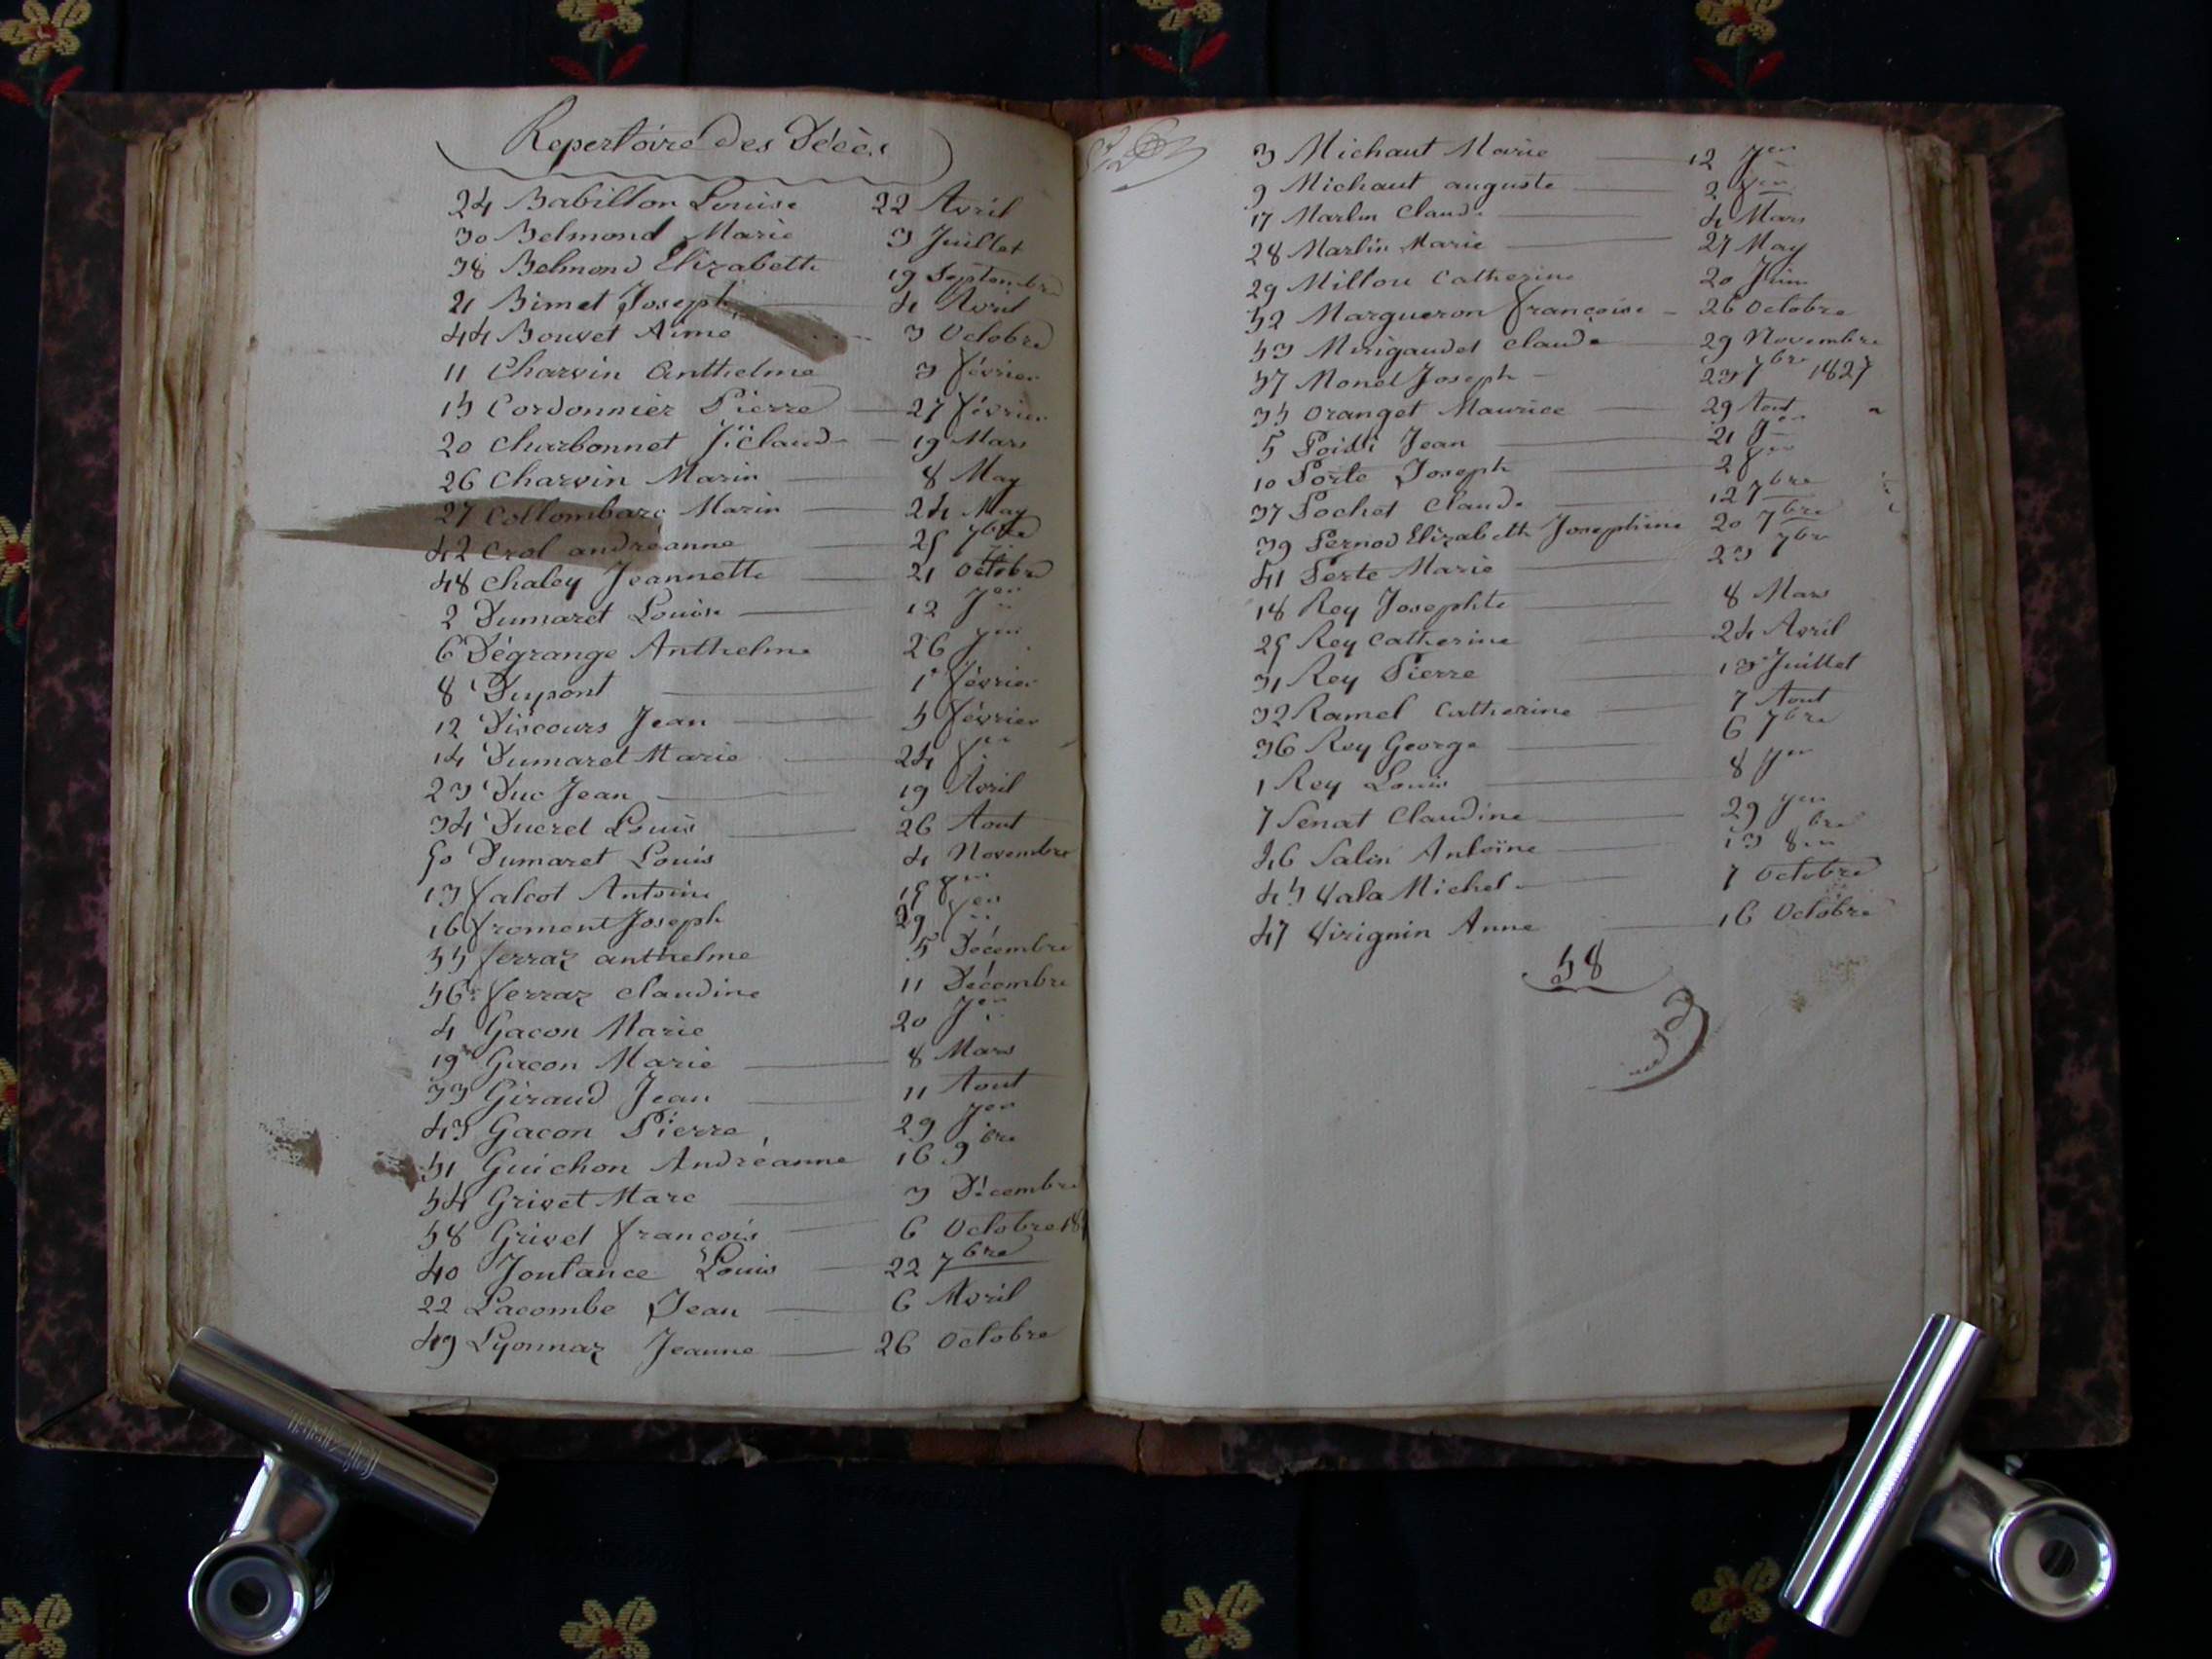 Repertoire des Décès
24 Babillon Louise 22 Avril
30 Belmond Marie 3 Juillet
38 Belmond Elizabeth 19 Septembre
21 Bimet Joseph 4 Avril
44 Bouvet Aimé 3 Octobre
11 Charvin Anthelme 3 février
15 Cordonnier Pierre 27 février
20 Charbonnet Claud 19 Mars
26 Charvin Marin 8 May
27 Collombare Marin 24 May
42 Crol andreanne 25 7bre
48 Chaley Jeannette 21 Octobre
2 Dumaret Louise 12 Jer
6 Dégrange Anthelme 26 Jer
8 Dupont 1er février
12 Discours Jean 5 février
14 Dumaret Marie 24 fer
23 Duc Jean 19 Avril
34 Ducret Louis 26 Aout
50 Dumaret Louis 4 Novembre
13 falcot Antoine 15
16 froment Joseph 29 fer
55 ferraz anthelme 5 Décembre
56 ferraz Claudine 11 Décembre
4 Gacon Marie 20 Jer
19 Gacon Marie 8 Mars
33 Giraud Jean 11 Aout
43 Gacon Pierre 29
51 Guichon Andréanne 16 9bre
54 Grivet Marc 3 Décembre
58 Grivel francois 6 Octobre 18
40 Joulance Louis 22 7bre
22 Lacombe Jean 6 Avril
49 Lyonnaz Jeanne 26 Octobre
3 Michaut Marie 12 Jer
9 Michaut auguste 2 fer
17 Marlin Claude 4 Mars
28 Marlin Marie 27 May
29 Millou Catherine 20 Juin
52 Margueron françoise 26 Octobre
53 Mirigaudet Claude 29 Novembre
57 Monel Joseph 23 7bre 1827
35 Oranget Maurice 29 Aout
5 Jean 21 Jer
10 Porte Joseph 2 fer
37 Pochet Claude 12 7bre
39 Pernod Elizabeth Josephine 20 7bre
41 Perte Marie 23 7bre
18 Rey Josephte 8 Mars
25 Rey Catherine 24 Avril
31 Rey Pierre 13 Juillet
32 Ramel Catherine 7 Aout
36 Rey George 6 7bre
1 Rey Louis 8 Jer
7 Senat Claudine 29 Jer
46 Salin Antoine 13 8bre
45 Vala Michel 7 Octobre
47 Virignin Anne 16 Octobre
58